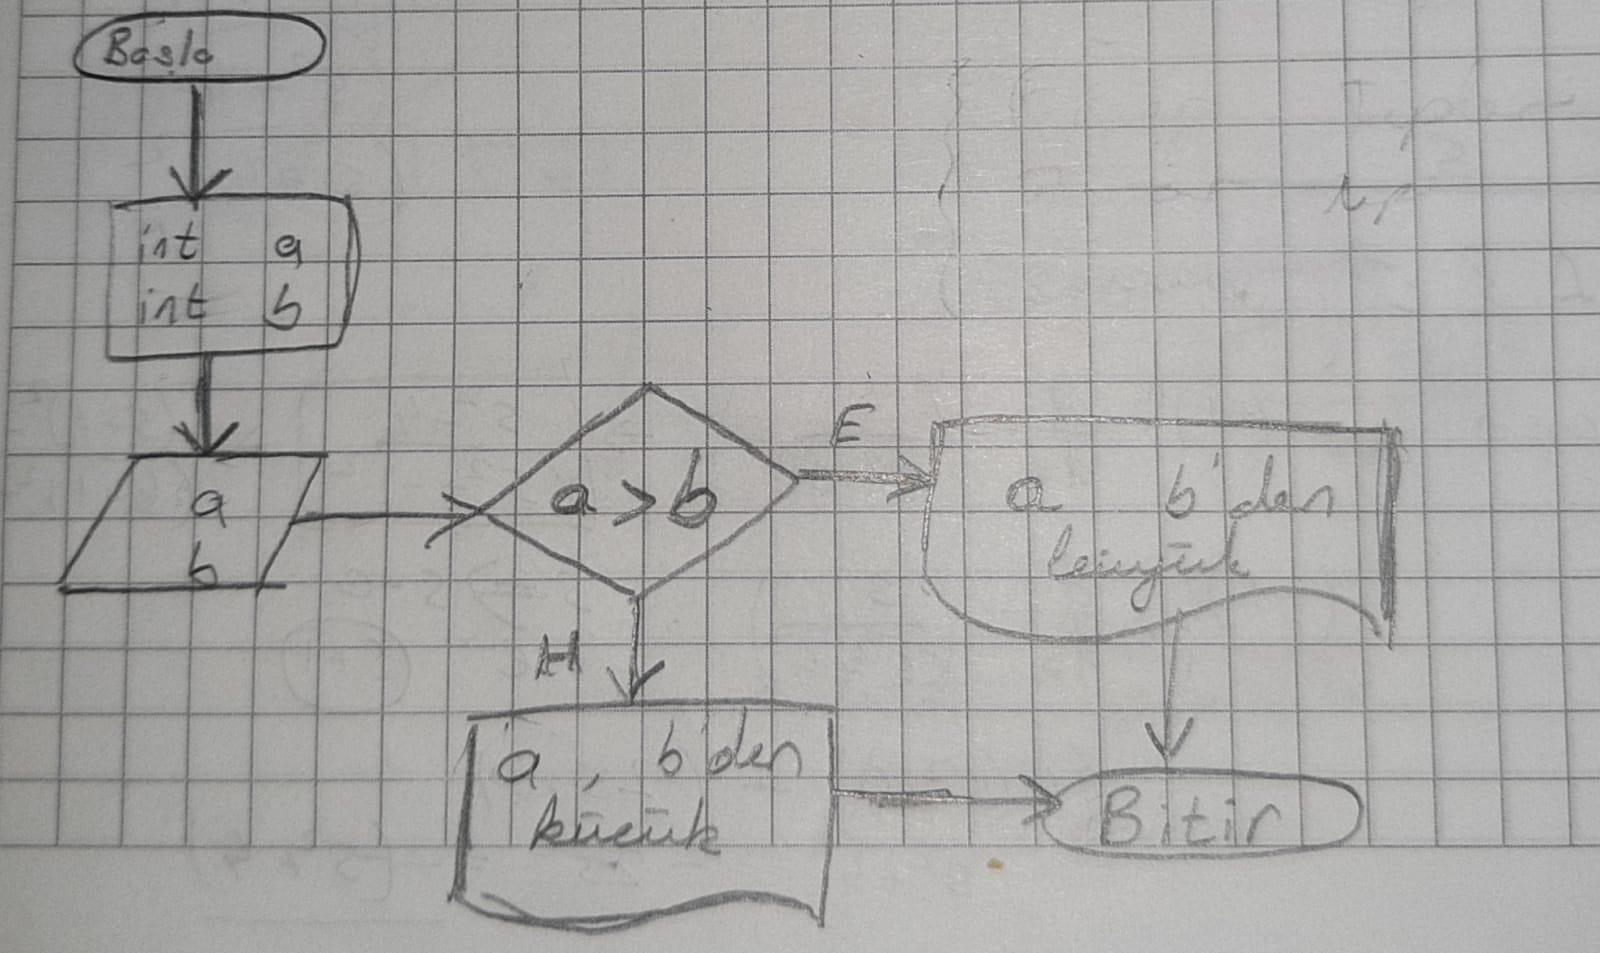 Başla
int a
int b
a
b
a > b
E
a b'den
büyük
H
a, b'den
küçük
Bitir